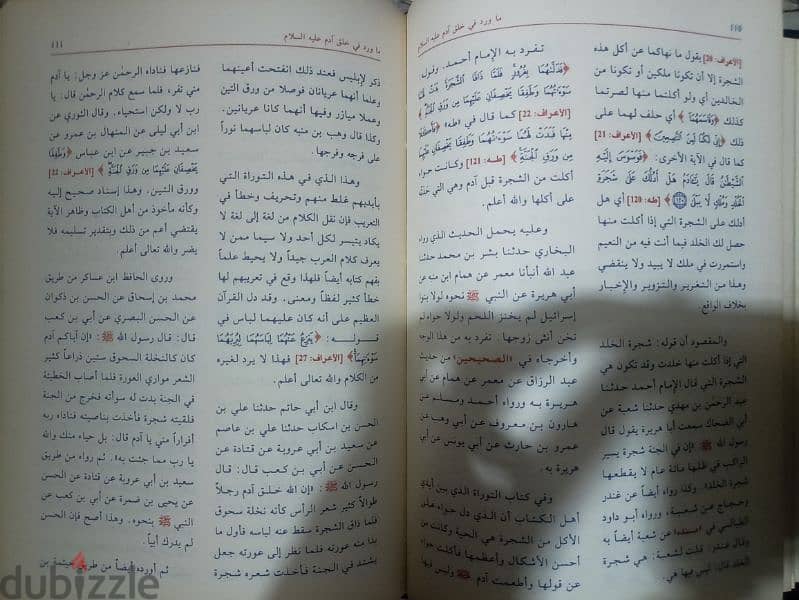 ١١٠
ما ورد في خلق آدم عليه السلام
[الأعراف: 20] يقول ما نهاكما عن أكل هذه
الشجرة إلا أن تكونا ملكين أو تكونا من
الخالدين أي ولو أكلتما منها لصرتما
كذلك ﴿وَقَاسَمَهُمَا﴾ أي حلف لهما على
ذلك ﴿إِنِّي لَكُمَا لَمِنَ النَّاصِحِينَ﴾ [الأعراف: 21]
كما قال في الآية الأخرى: ﴿فَوَسْوَسَ إِلَيْهِ
الشَّيْطَانُ قَالَ يَا آدَمُ هَلْ أَدُلُّكَ عَلَى شَجَرَةِ
الْخُلْدِ وَمُلْكٍ لَا يَبْلَى﴾ [طه: 120] أي هل
أدلك على الشجرة التي إذا أكلت منها
حصل لك الخلد فيما أنت فيه من النعيم
واستمررت في ملك لا يبيد ولا ينقضي
وهذا من التغرير والتزوير والإخبار
بخلاف الواقع.
والمقصود أن قوله: شجرة الخلد
التي إذا أكلت منها خلدت وقد تكون هي
الشجرة التي قال الإمام أحمد حدثنا
عبد الرحمن بن مهدي حدثنا شعبة عن
أبي الضحاك سمعت أبا هريرة يقول قال
رسول الله ﷺ «إن في الجنة شجرة يسير
الراكب في ظلها مائة عام لا يقطعها
شجرة الخلد». وكذا رواه أيضاً عن غندر
وحجاج عن شعبة، ورواه أبو داود
الطيالسي في مسنده عن شعبة أيضاً به
وقال غندر: قلت لشعبة: هي شجرة
الخلد؟ قال: ليس فيها هي.
تفرد به الإمام أحمد. وقوله:
﴿فَدَلَّاهُمَا بِغُرُورٍ فَلَمَّا ذَاقَا الشَّجَرَةَ بَدَتْ لَهُمَا
سَوْءَاتُهُمَا وَطَفِقَا يَخْصِفَانِ عَلَيْهِمَا مِنْ وَرَقِ الْجَنَّةِ﴾
[الأعراف: 22] كما قال في «طه» ﴿فَأَكَلَا
مِنْهَا فَبَدَتْ لَهُمَا سَوْءَاتُهُمَا وَطَفِقَا يَخْصِفَانِ عَلَيْهِمَا
مِنْ وَرَقِ الْجَنَّةِ﴾ [طه: 121] وكانت حواء
أكلت من الشجرة قبل آدم وهي التي حثته
على أكلها والله أعلم.
وعليه يحمل الحديث الذي رواه
البخاري حدثنا بشر بن محمد حدثنا
عبد الله أنبأنا معمر عن همام ابن منبه عن
أبي هريرة عن النبي ﷺ نحوه لولا بنو
إسرائيل لم يخنز اللحم ولولا حواء لم
تخن أنثى زوجها. تفرد به من هذا الوجه
وأخرجاه في «الصحيحين» من حديث
عبد الرزاق عن معمر عن همام عن أبي
هريرة به ورواه أحمد ومسلم عن
هارون بن معروف عن أبي وهب عن
عمرو بن حارث عن أبي يونس عن أبي
هريرة به.
وفي كتاب التوراة الذي بين أيدي
أهل الكتاب أن الذي دل حواء على
الأكل من الشجرة هي الحية وكانت من
أحسن الأشكال وأعظمها فأكلت حواء
عن قولها وأطعمت آدم ﷺ وليس فيها
ما ورد في خلق آدم عليه السلام
١١١
ذكر لإبليس فعند ذلك انفتحت أعينهما
وعلما أنهما عريانان فوصلا من ورق التين
وعملا ميازر وفيها أنهما كانا عريانين.
وكذا قال وهب بن منبه كان لباسهما نوراً
على فرجه وفرجها.
وهذا الذي في هذه التوراة التي
بأيديهم غلط منهم وتحريف وخطأ في
التعريب فإن نقل الكلام من لغة إلى لغة لا
يكاد يتيسر لكل أحد ولا سيما ممن لا
يعرف كلام العرب جيداً ولا يحيط علماً
بفهم كتابه أيضاً فلهذا وقع في تعريبهم لها
خطأ كثير لفظاً ومعنى. وقد دل القرآن
العظيم على أنه كان عليهما لباس في
قوله: ﴿يَنْزِعُ عَنْهُمَا لِبَاسَهُمَا لِيُرِيَهُمَا
سَوْءَاتِهِمَا﴾ [الأعراف: 27] فهذا لا يرد لغيره
من الكلام والله تعالى أعلم.
وقال ابن أبي حاتم حدثنا علي بن
الحسن بن اسكاب حدثنا علي بن عاصم
عن سعيد بن أبي عروبة عن قتادة عن
الحسن عن أبي بن كعب قال: قال
رسول الله ﷺ: «إن الله خلق آدم رجلاً
طوالاً كثير شعر الرأس كأنه نخلة سحوق
فلما ذاق الشجرة سقط عنه لباسه فأول ما
بدا منه عورته فلما نظر إلى عورته جعل
يشتد في الجنة فأخذت شعره شجرة
فنازعها فناداه الرحمن عز وجل: يا آدم
مني تفر، فلما سمع كلام الرحمن قال: يا
رب لا ولكن استحياء. وقال الثوري عن
ابن أبي ليلى عن المنهال بن عمرو عن
سعيد بن جبير عن ابن عباس ﴿وَطَفِقَا
يَخْصِفَانِ عَلَيْهِمَا مِنْ وَرَقِ الْجَنَّةِ﴾ [الأعراف: 22]
ورق التين. وهذا إسناد صحيح إليه
وكأنه مأخوذ من أهل الكتاب وظاهر الآية
يقتضي أعم من ذلك وبتقدير تسليمه فلا
يضر والله تعالى أعلم.
وروى الحافظ ابن عساكر من طريق
محمد بن إسحاق عن الحسن بن ذكوان
عن الحسن البصري عن أبي بن كعب
قال: قال رسول الله ﷺ: «إن أباكم آدم
كان كالنخلة السحوق ستين ذراعاً كثير
الشعر موارى العورة فلما أصاب الخطيئة
في الجنة بدت له سوأته فخرج من الجنة
فلقيته شجرة فأخذت بناصيته فناداه ربه
أفراراً مني يا آدم قال: بل حياء منك والله
يا رب مما جئت به». ثم رواه من طريق
سعيد بن أبي عروبة عن قتادة عن الحسن
عن يحيى بن ضمرة عن أبي بن كعب عن
النبي ﷺ بنحوه. وهذا أصح فإن الحسن
لم يدرك أبياً.
ثم أورده أيضاً من طريق خيثمة بن
dubizzle